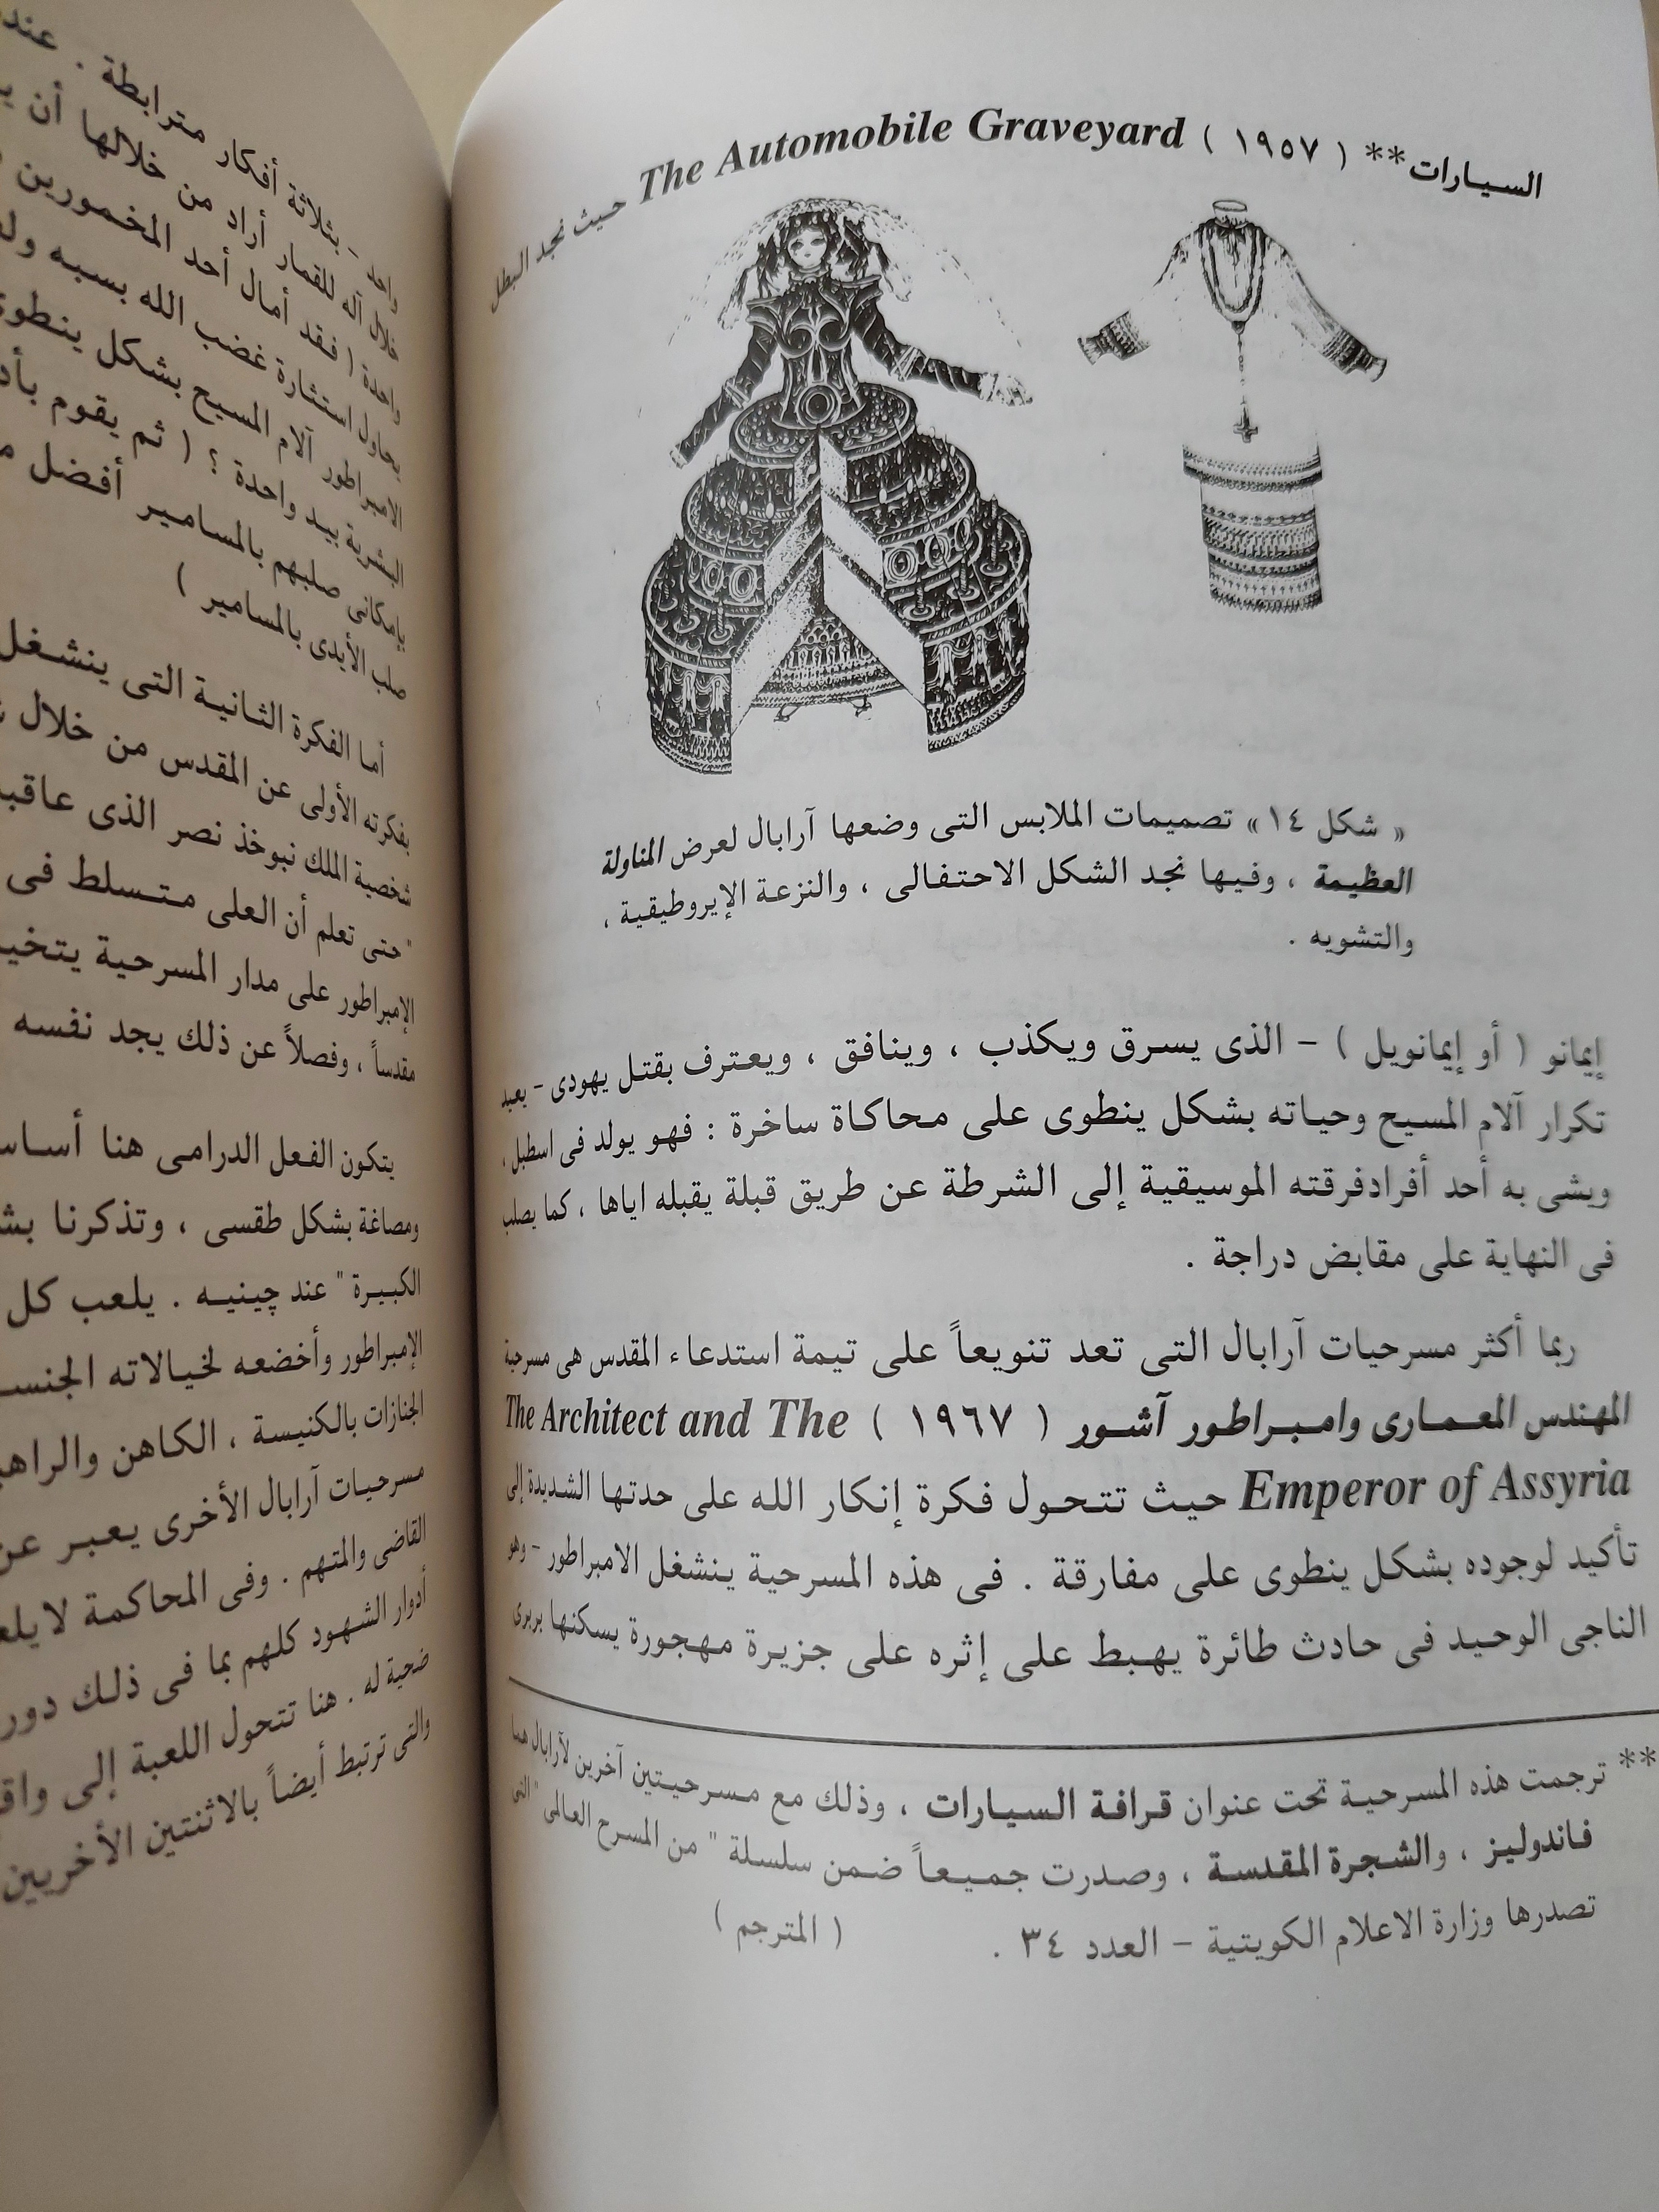 السيارات** ( ١٩٥٧ ) The Automobile Graveyard حيث نجد البطل
« شكل ١٤ » تصميمات الملابس التى وضعها آرابال لعرض المناولة
العظيمة ، وفيها نجد الشكل الاحتفالى ، والنزعة الإيروطيقية ،
والتشويه .
إيمانو ( أو إيمانويل ) – الذى يسرق ويكذب ، وينافق ، ويعترف بقتل يهودى – يعبد
تكرار آلام المسيح وحياته بشكل ينطوى على محاكاة ساخرة : فهو يولد فى اسطبل ،
ويشى به أحد أفرادفرقته الموسيقية إلى الشرطة عن طريق قبلة يقبله اياها ، كما يصلب
فى النهاية على مقابض دراجة .
ربما أكثر مسرحيات آرابال التى تعد تنويعاً على تيمة استدعاء المقدس هى مسرحية
المهندس المعمارى وامبراطور آشور ( ١٩٦٧ ) The Architect and The
Emperor of Assyria حيث تتحول فكرة إنكار الله على حدتها الشديدة إلى
تأكيد لوجوده بشكل ينطوى على مفارقة . فى هذه المسرحية ينشغل الامبراطور – وهو
الناجى الوحيد فى حادث طائرة يهبط على إثره على جزيرة مهجورة يسكنها بربرى
** ترجمت هذه المسرحية تحت عنوان قرافة السيارات ، وذلك مع مسرحيتين آخرين لآرابال هما
فاندوليز ، والشجرة المقدسة ، وصدرت جميعاً ضمن سلسلة " من المسرح العالمى " التى
تصدرها وزارة الاعلام الكويتية – العدد ٣٤ . ( المترجم )
واحد – بثلاثة أفكار مترابطة .
خلال آله للقمار أراد من خلالها أن
واحدة ( فقد أمال أحد المخمورين
يحاول استشارة غضب الله بسبه
الامبراطور آلام المسيح بشكل
البشرية بيد واحدة ؟ ( ثم يقوم
بإمكانى صلبهم بالمسامير أفضل
صلب الأيدى بالمسامير )
أما الفكرة الثانية التى ينشغل
بفكرته الأولى عن المقدس من خلال
شخصية الملك نبوخذ نصر الذى
" حتى تعلم أن العلى متسلط فى
الإمبراطور على مدار المسرحية
مقدساً ، وفصلاً عن ذلك يجد نفسه
يتكون الفعل الدرامى هنا
ومصاغة بشكل طقسى ، وتذكرنا
الكبيرة " عند چينيه . يلعب كل
الإمبراطور وأخضعه لخيالاته
الجنازات بالكنيسة ، الكاهن
مسرحيات آرابال الأخرى يعبر
القاضى والمتهم . وفى المحاكمة
أدوار الشهود كلهم بما فى ذلك دور
ضحية له . هنا تتحول اللعبة إلى
والتى ترتبط أيضاً بالاثنتين الأخريين